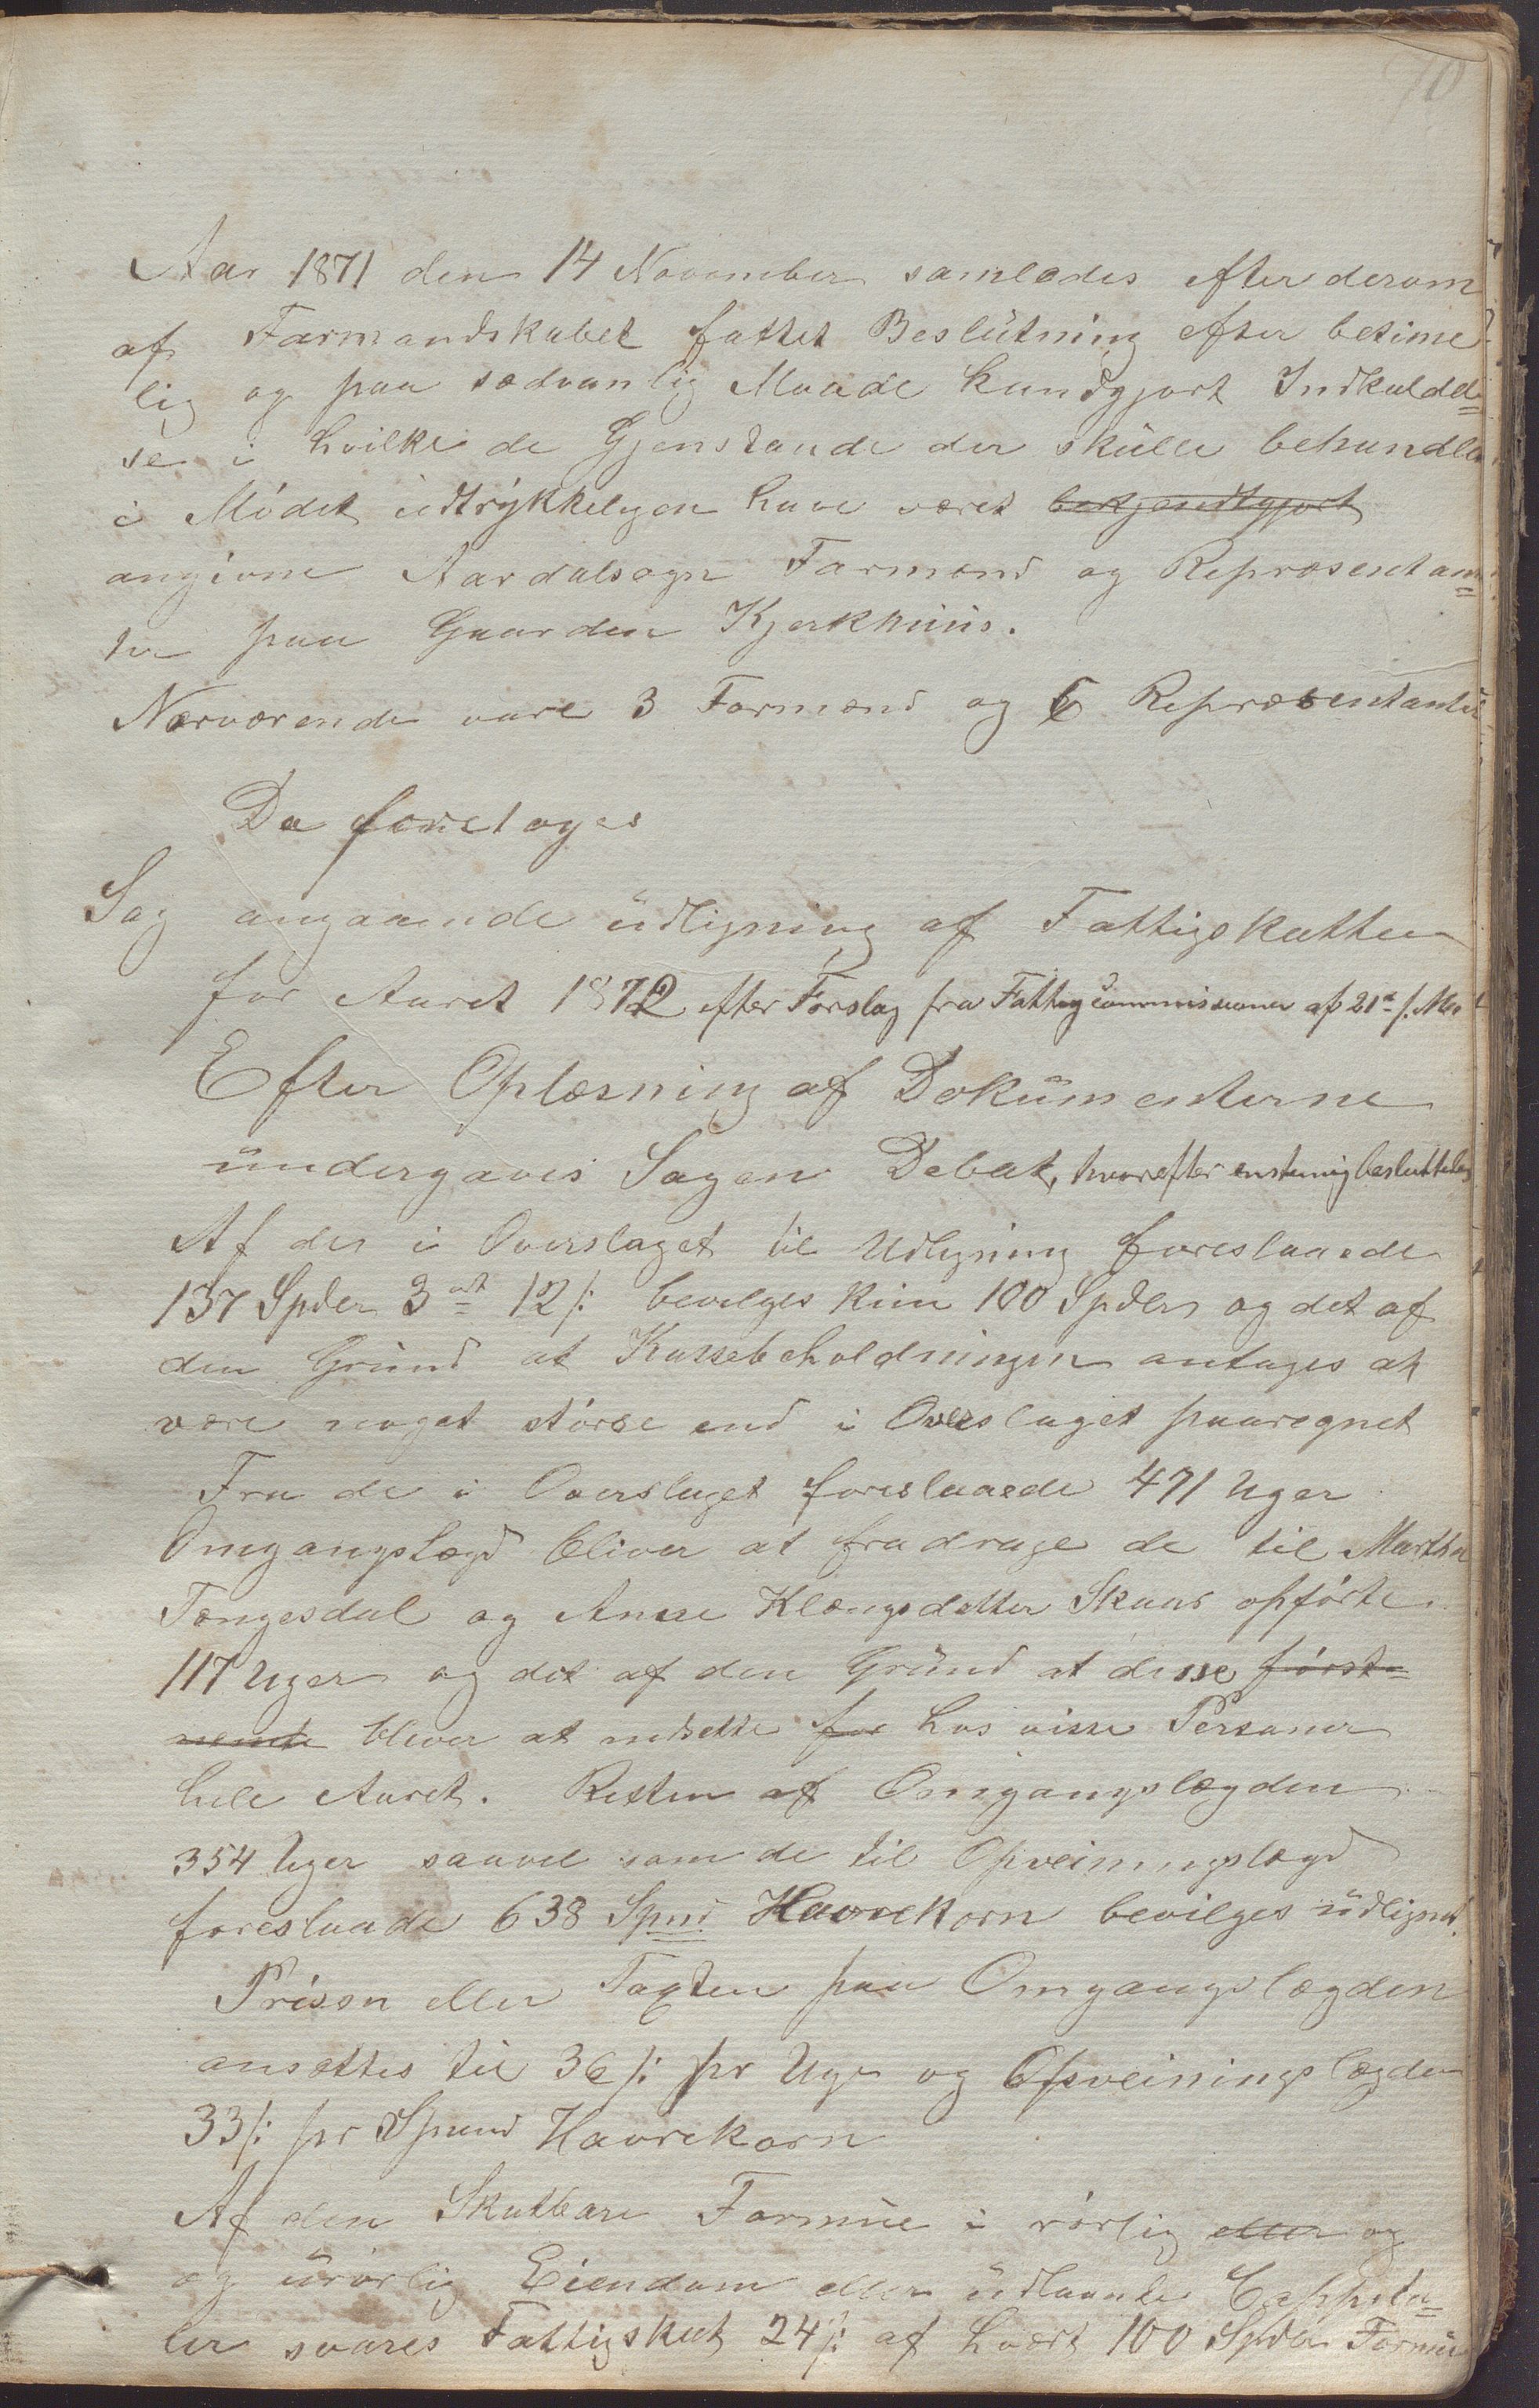 70
Aar 1871 den 14 November samledes efter derom
af Formandskabet fattet Beslutning efter betime-
lig og paa sædvanlig Maade kundgjort Indkaldel=
se i hvilke de Gjenstande der skulle behandles
i Mødet udtrykkeligen have været bekjendtgjort
angivne Aardalsogn Formænd og Repræsentan=
ter paa Gaarden Kjerkhuus.
Nærværende vare 3 Formænd og 6 Repræsentanter
Da foretoges
Sag angaaende Udligning af Fattigskatten
for Aaret 1872 efter Forslag fra Fattigcommissionen af 21de f. M.
Efter Oplæsning af Dokumenterne
undergaves Sagen Debat, hvorefter enstemig besluttedes
Af der i Overslaget til Udligning foreslaaede
137 Spdler 3 ort 12 /: bevilges kun 100 Spdler og det af
den Grund at Kassebeholdningen antages at
være noget større end i Overslaget paaregnet
Fra de i Overslaget foreslaaede 471 Uger
Omgangslægd bliver at fradrage de til Martha
Tængesdal og Anne Klængsdatter Skaar opførte
117 Uger og det af den Grund at disse først=
nevnte bliver at nedsette for hos visse Personer
hele Aaret. Resten af Omgangslægden
354 Uger saavel som de til Opveiningslægd
foreslaade 638 Spnd Havrekorn bevilges udlignet.
Prisen eller Taxten paa Omgangslægden
ansættes til 36 /: pr Uge og Opveiningslægden
33 /: pr Spund Havrekorn
Af den Skatbare Formue i rørlig eller og
og urørlig Eiendom eller udlaante Cappita=
ler svares Fattigskat 24 /: af hvert 100 Spdlr Formue